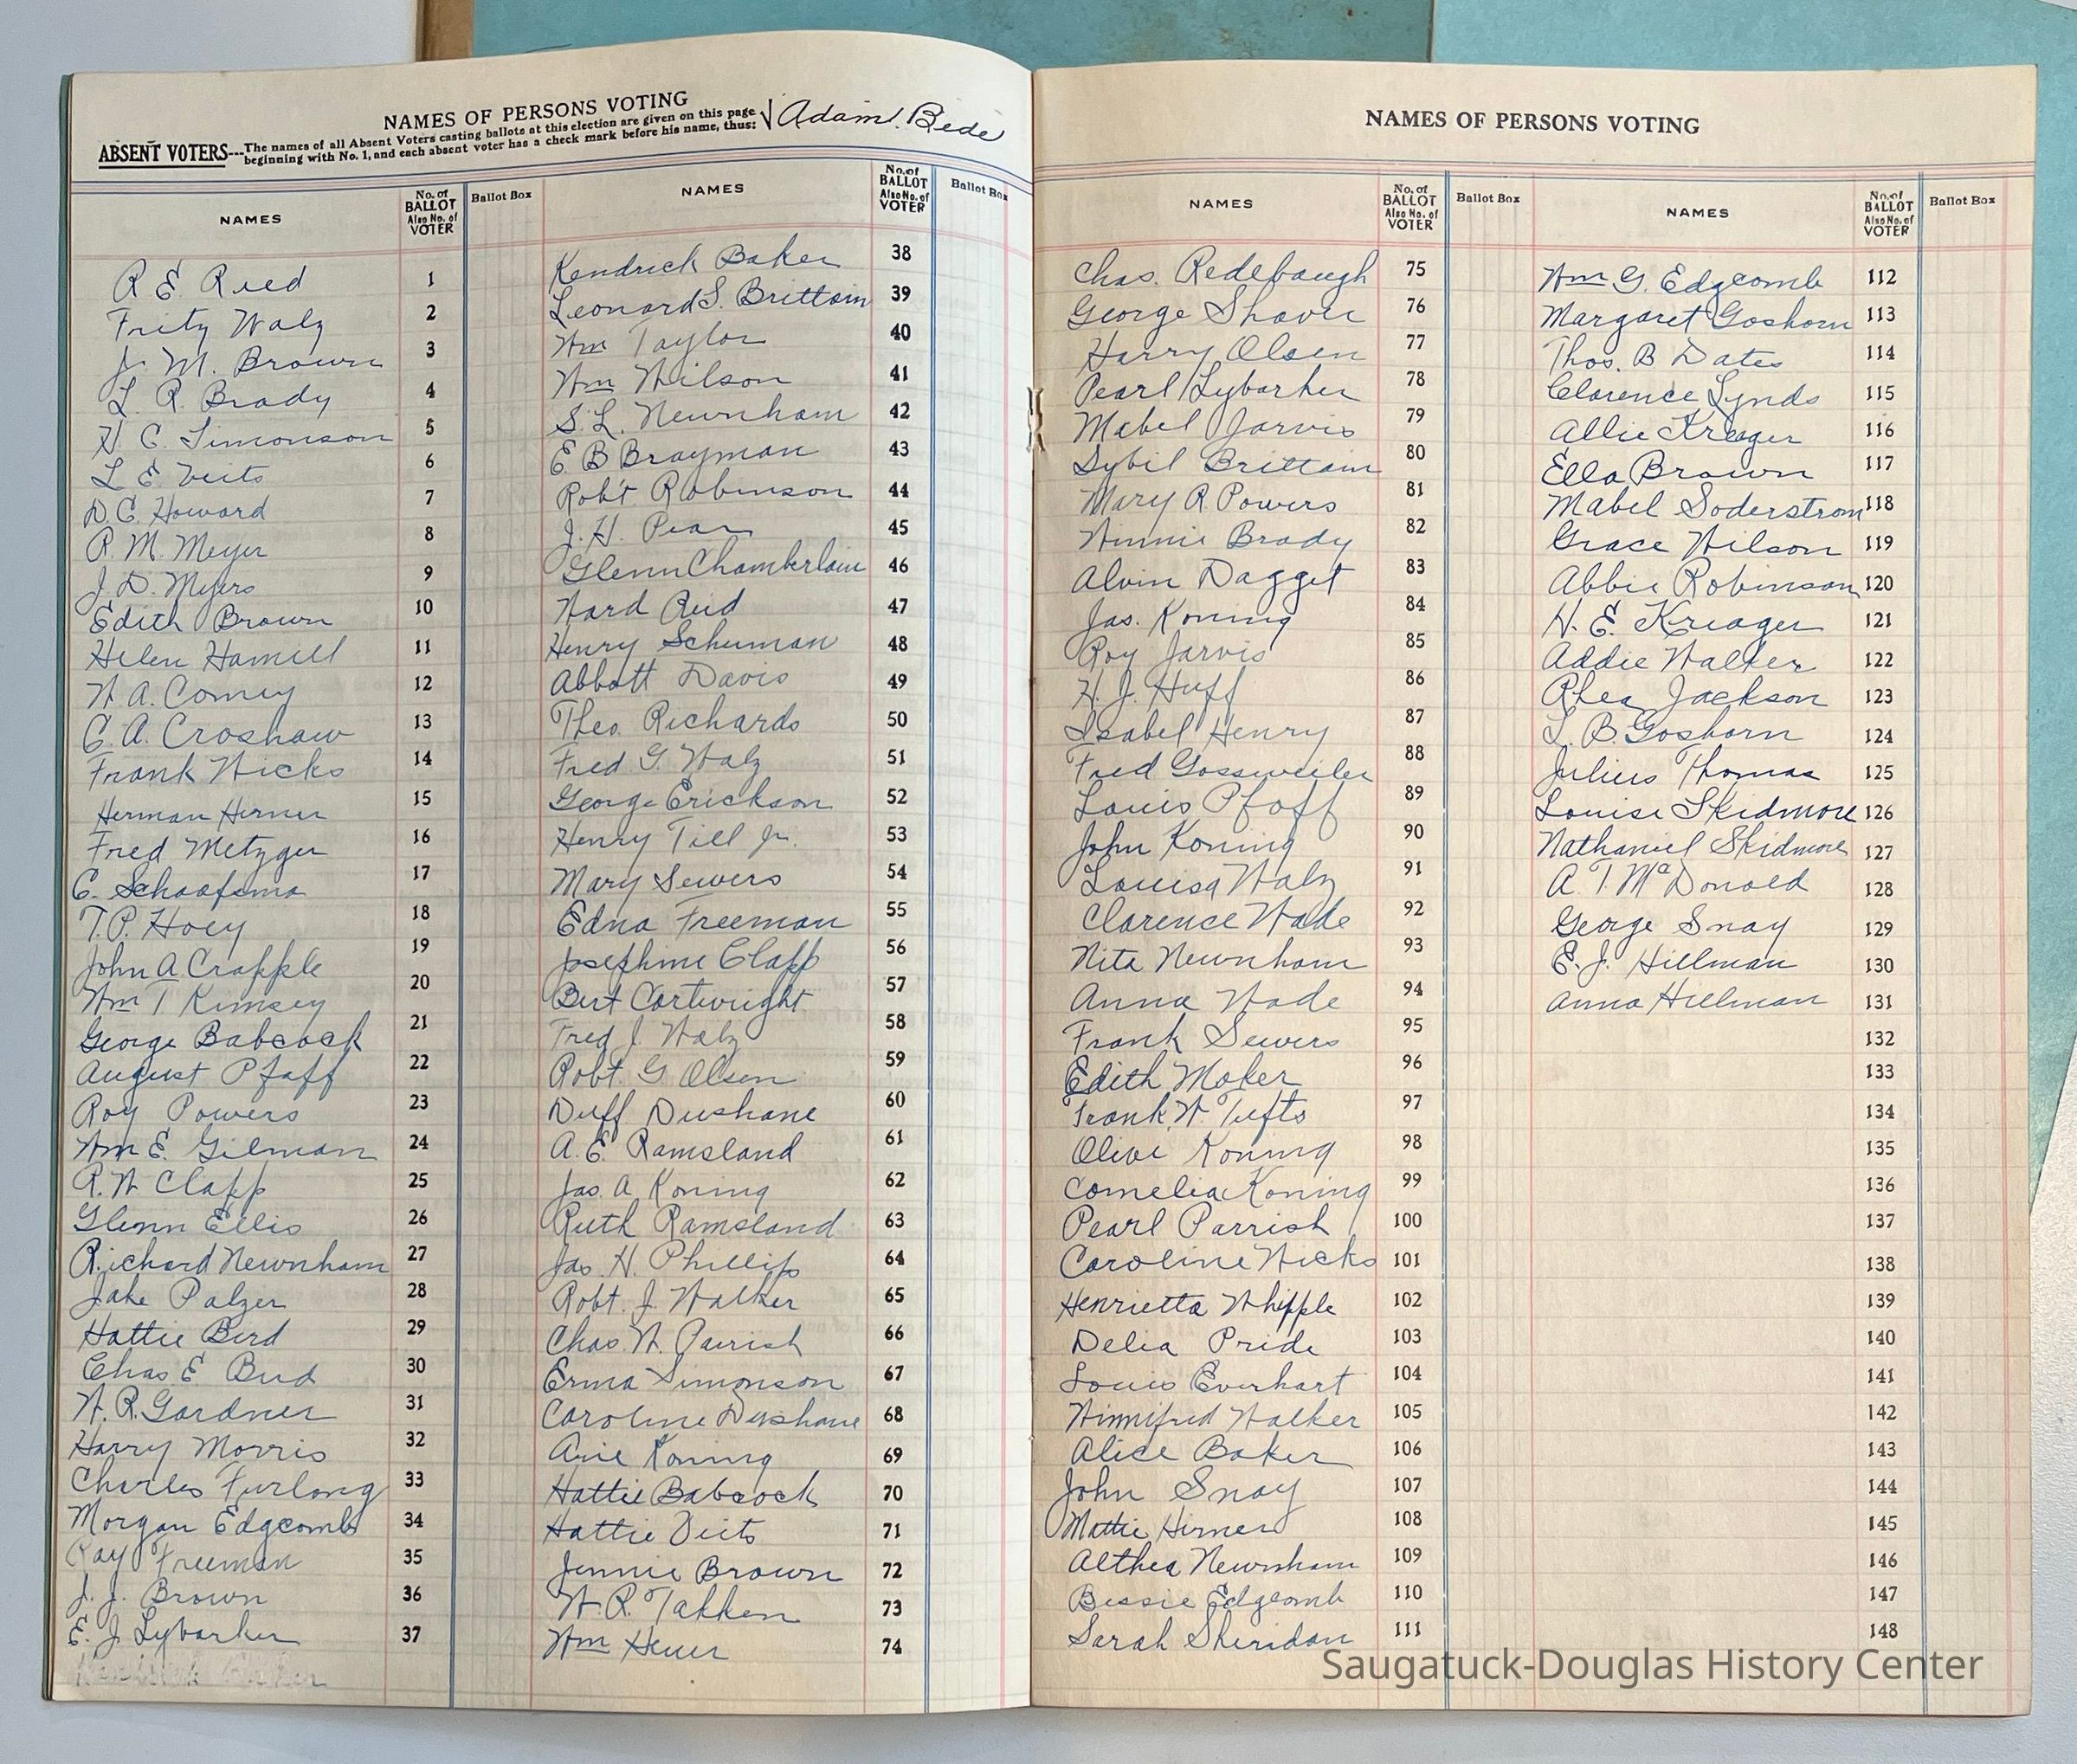 NAMES OF PERSONS VOTING
ABSENT VOTERS---The names of all Absent Voters casting ballots at this election are given on this page
beginning with No. 1, and each absent voter has a check mark before his name, thus: √ Adam Bede
NAMES No. of BALLOT Also No. of VOTER Ballot Box NAMES No. of BALLOT Also No. of VOTER Ballot Box
R. E. Reed 1
Fritz Walz 2
J. M. Brown 3
L. R. Brady 4
H. C. Simonson 5
L E Veits 6
D. C. Howard 7
R. M. Meyer 8
J. D. Myers 9
Edith Brown 10
Helen Hamill 11
W. A. Comey 12
C. A. Croshaw 13
Frank Wicks 14
Herman Hirner 15
Fred Metzger 16
C. Schaafsma 17
T. P. Hoey 18
John A Crapple 19
Wm T Kimsey 20
George Babcock 21
August Pfaff 22
Roy Powers 23
Wm E. Gilman 24
R. W. Clapp 25
Glenn Ellis 26
Richard Newnham 27
Jake Palzer 28
Hattie Bird 29
Chas E Bird 30
W. R. Gardner 31
Harry Morris 32
Charles Furlong 33
Morgan Edgcomb 34
Ray Freeman 35
J. J. Brown 36
E. J. Lybarker 37
Kendrick Baker 38
Leonard S. Brittain 39
Wm Taylor 40
Wm Wilson 41
S. L. Newnham 42
E B Brayman 43
Rob't Robinson 44
J. H. Pear 45
Glenn Chamberlain 46
Ward Reid 47
Henry Schuman 48
Abbott Davis 49
Theo. Richards 50
Fred G. Walz 51
George Erickson 52
Henry Till Jr. 53
Mary Sewers 54
Edna Freeman 55
Josephine Clapp 56
Bert Cartwright 57
Fred J. Walz 58
Robt. G Olsen 59
Duff Dushane 60
A. E. Ramsland 61
Jas. A Koning 62
Ruth Ramsland 63
Jas. H. Phillips 64
Robt. J. Walker 65
Chas. W. Parrish 66
Erma Simonson 67
Caroline Dushane 68
Arie Koning 69
Hattie Babcock 70
Hattie Veits 71
Jennie Brown 72
W. R. Takken 73
Wm Heuer 74
NAMES OF PERSONS VOTING
NAMES No. of BALLOT Also No. of VOTER Ballot Box NAMES No. of BALLOT Also No. of VOTER Ballot Box
Chas. Redebaugh 75
George Shaver 76
Harry Olsen 77
Pearl Lybarker 78
Mabel Jarvis 79
Sybil Brittain 80
Mary A. Powers 81
Winnie Brady 82
Alvin Dagget 83
Jas. Koning 84
Roy Jarvis 85
H. J. Huff 86
Isabel Henry 87
Fred Gossweiler 88
Louis Pfaff 89
John Koning 90
Louisa Walz 91
Clarence Wade 92
Nita Newnham 93
Anna Wade 94
Frank Sewers 95
Edith Moker 96
Frank W. Tufts 97
Olive Koning 98
Cornelia Koning 99
Pearl Parrish 100
Caroline Wicks 101
Henrietta Whipple 102
Delia Pride 103
Louis Everhart 104
Winnifred Walker 105
Alice Baker 106
John Snay 107
Mattie Hirner 108
Althea Newnham 109
Bessie Edgcomb 110
Sarah Sheridan 111
Wm G. Edgcomb 112
Margaret Goshorn 113
Thos. B Dates 114
Clarence Lynds 115
Allie Kreager 116
Ella Brown 117
Mabel Soderstrom 118
Grace Wilson 119
Abbie Robinson 120
H. E. Kreager 121
Addie Walker 122
Rhea Jackson 123
L. B. Goshorn 124
Julius Thomas 125
Louise Skidmore 126
Nathaniel Skidmore 127
A. T. McDonald 128
George Snay 129
E. J. Hillman 130
Anna Hillman 131
132
133
134
135
136
137
138
139
140
141
142
143
144
145
146
147
148
Saugatuck-Douglas History Center